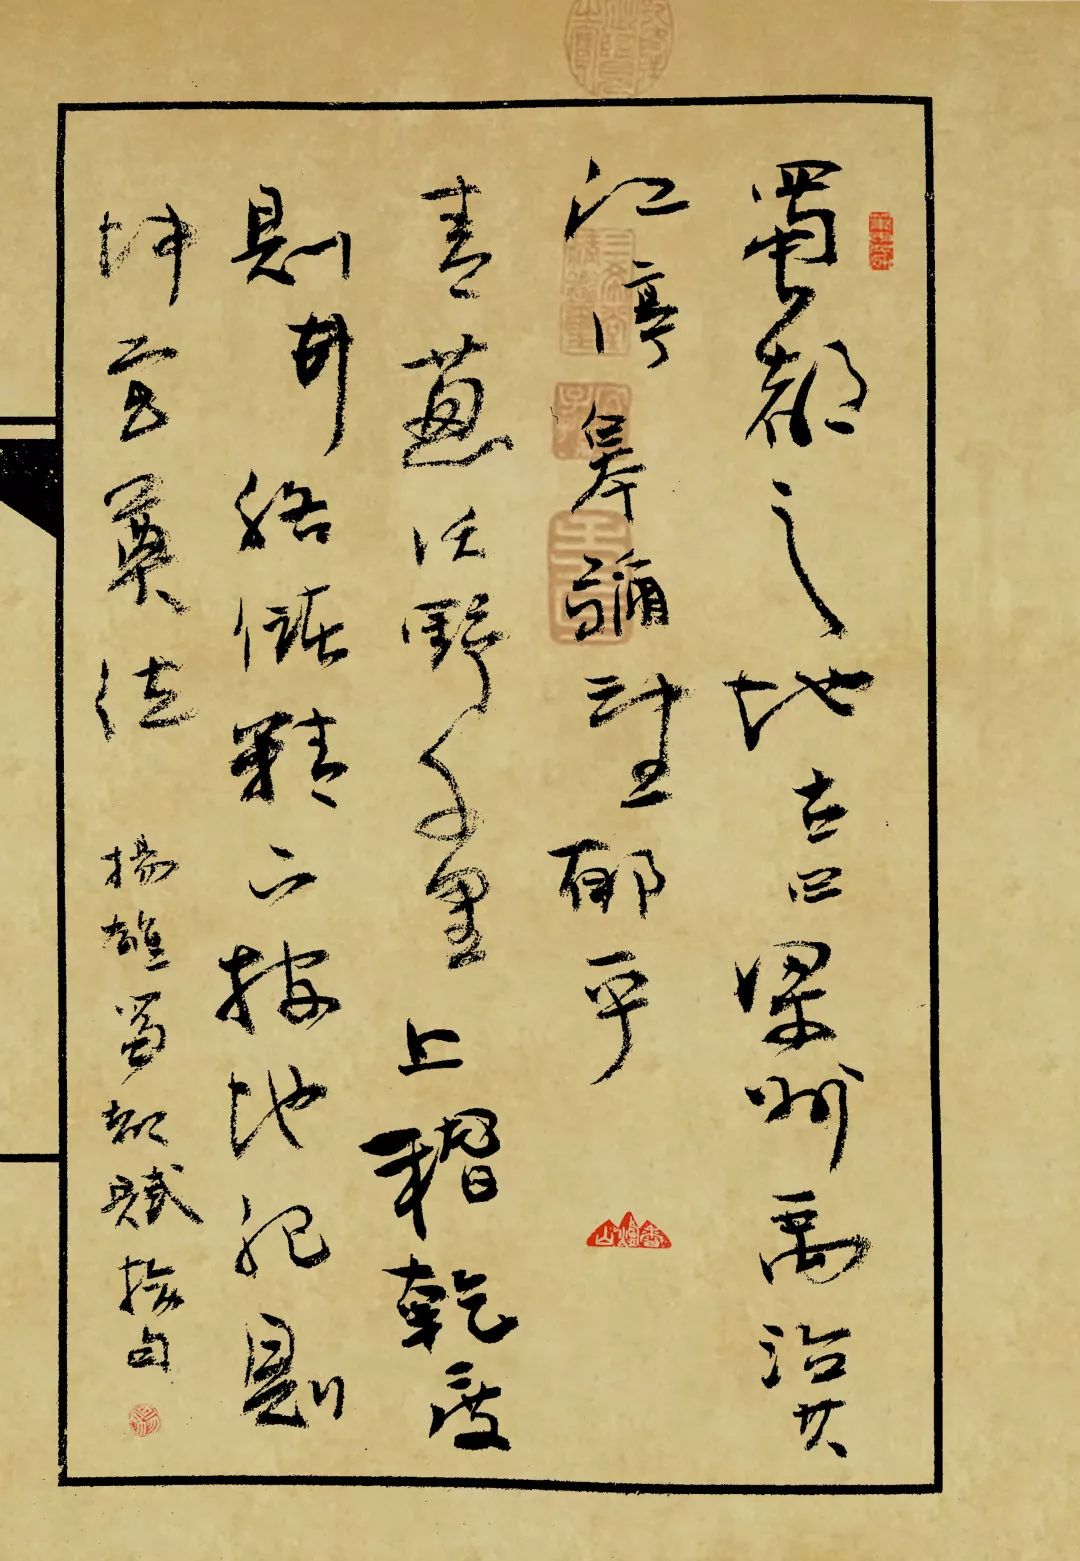 蜀都之地古曰梁州禹治其
江渟皋彌望郁乎
青蔥沃野千里上稽乾度
則井絡儲精下按地紀則
坤宮奠位 揚雄蜀都賦句
香爐山